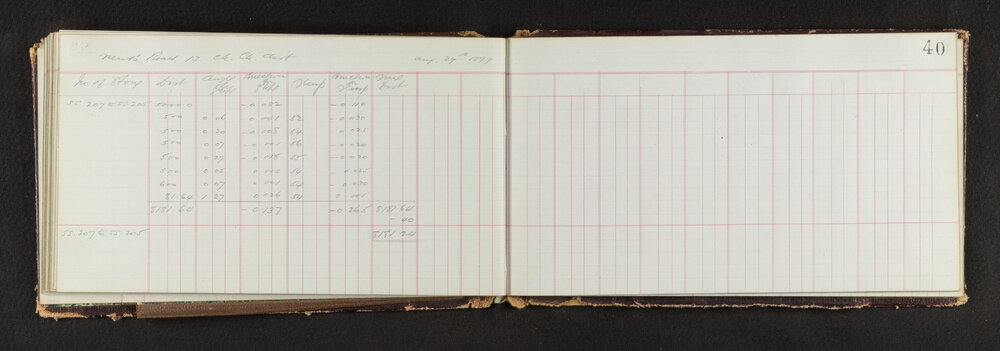 40
Road 12 Ch. Ch. Dist Aug. 29th 1899
No of Stone Dist Angle of Slope Correction for Slope Temp Correction for Temp True Dist
55.207 to 55.205 5000.0 - 0.082 - 0.110
500 0 06 0.001 52 - 0.030
500 0 20 - 0.008 54 - 0.025
500 0 07 - 0.001 56 - 0.020
500 0 27 - 0.018 55 - 0.020
500 0 05 0.000 54 - 0.025
600 0 07 0.001 54 - 0.030
81.64 1 27 0.026 54 0.101
8181.64 - 0.137 - 0.265 8181.64
- 40
55.207 to 55.205 8181.24